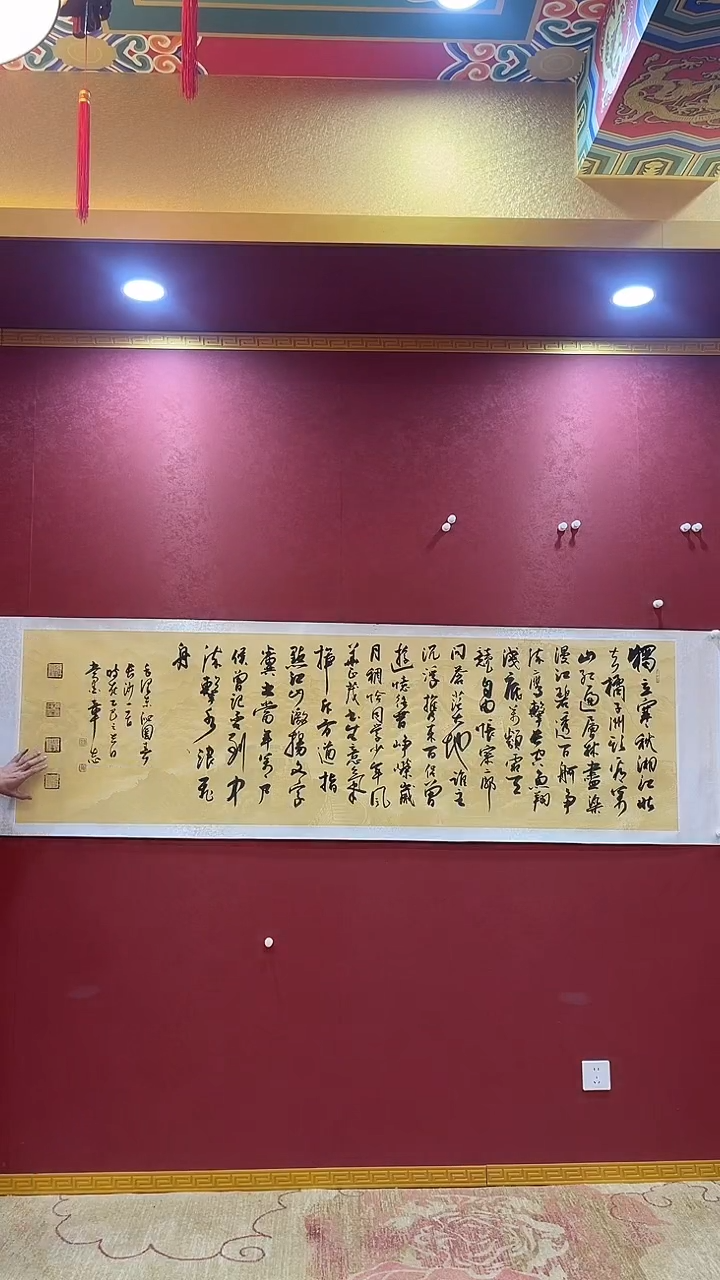 獨立寒秋湘江北
去橘子洲頭看萬
山紅遍層林盡染
漫江碧透百舸爭
流鷹擊長空魚翔
淺底萬類霜天
競自由悵寥廓
問蒼茫大地誰主
沉浮攜來百侶曾
遊憶往昔崢嶸歲
月稠恰同學少年風
華正茂書生意氣
揮斥方遒指
點江山激揚文字
糞土當年萬戶
侯曾記否到中
流擊水浪遏飛
舟
毛澤東沁園春
長沙一首
時在乙巳之春日
華志